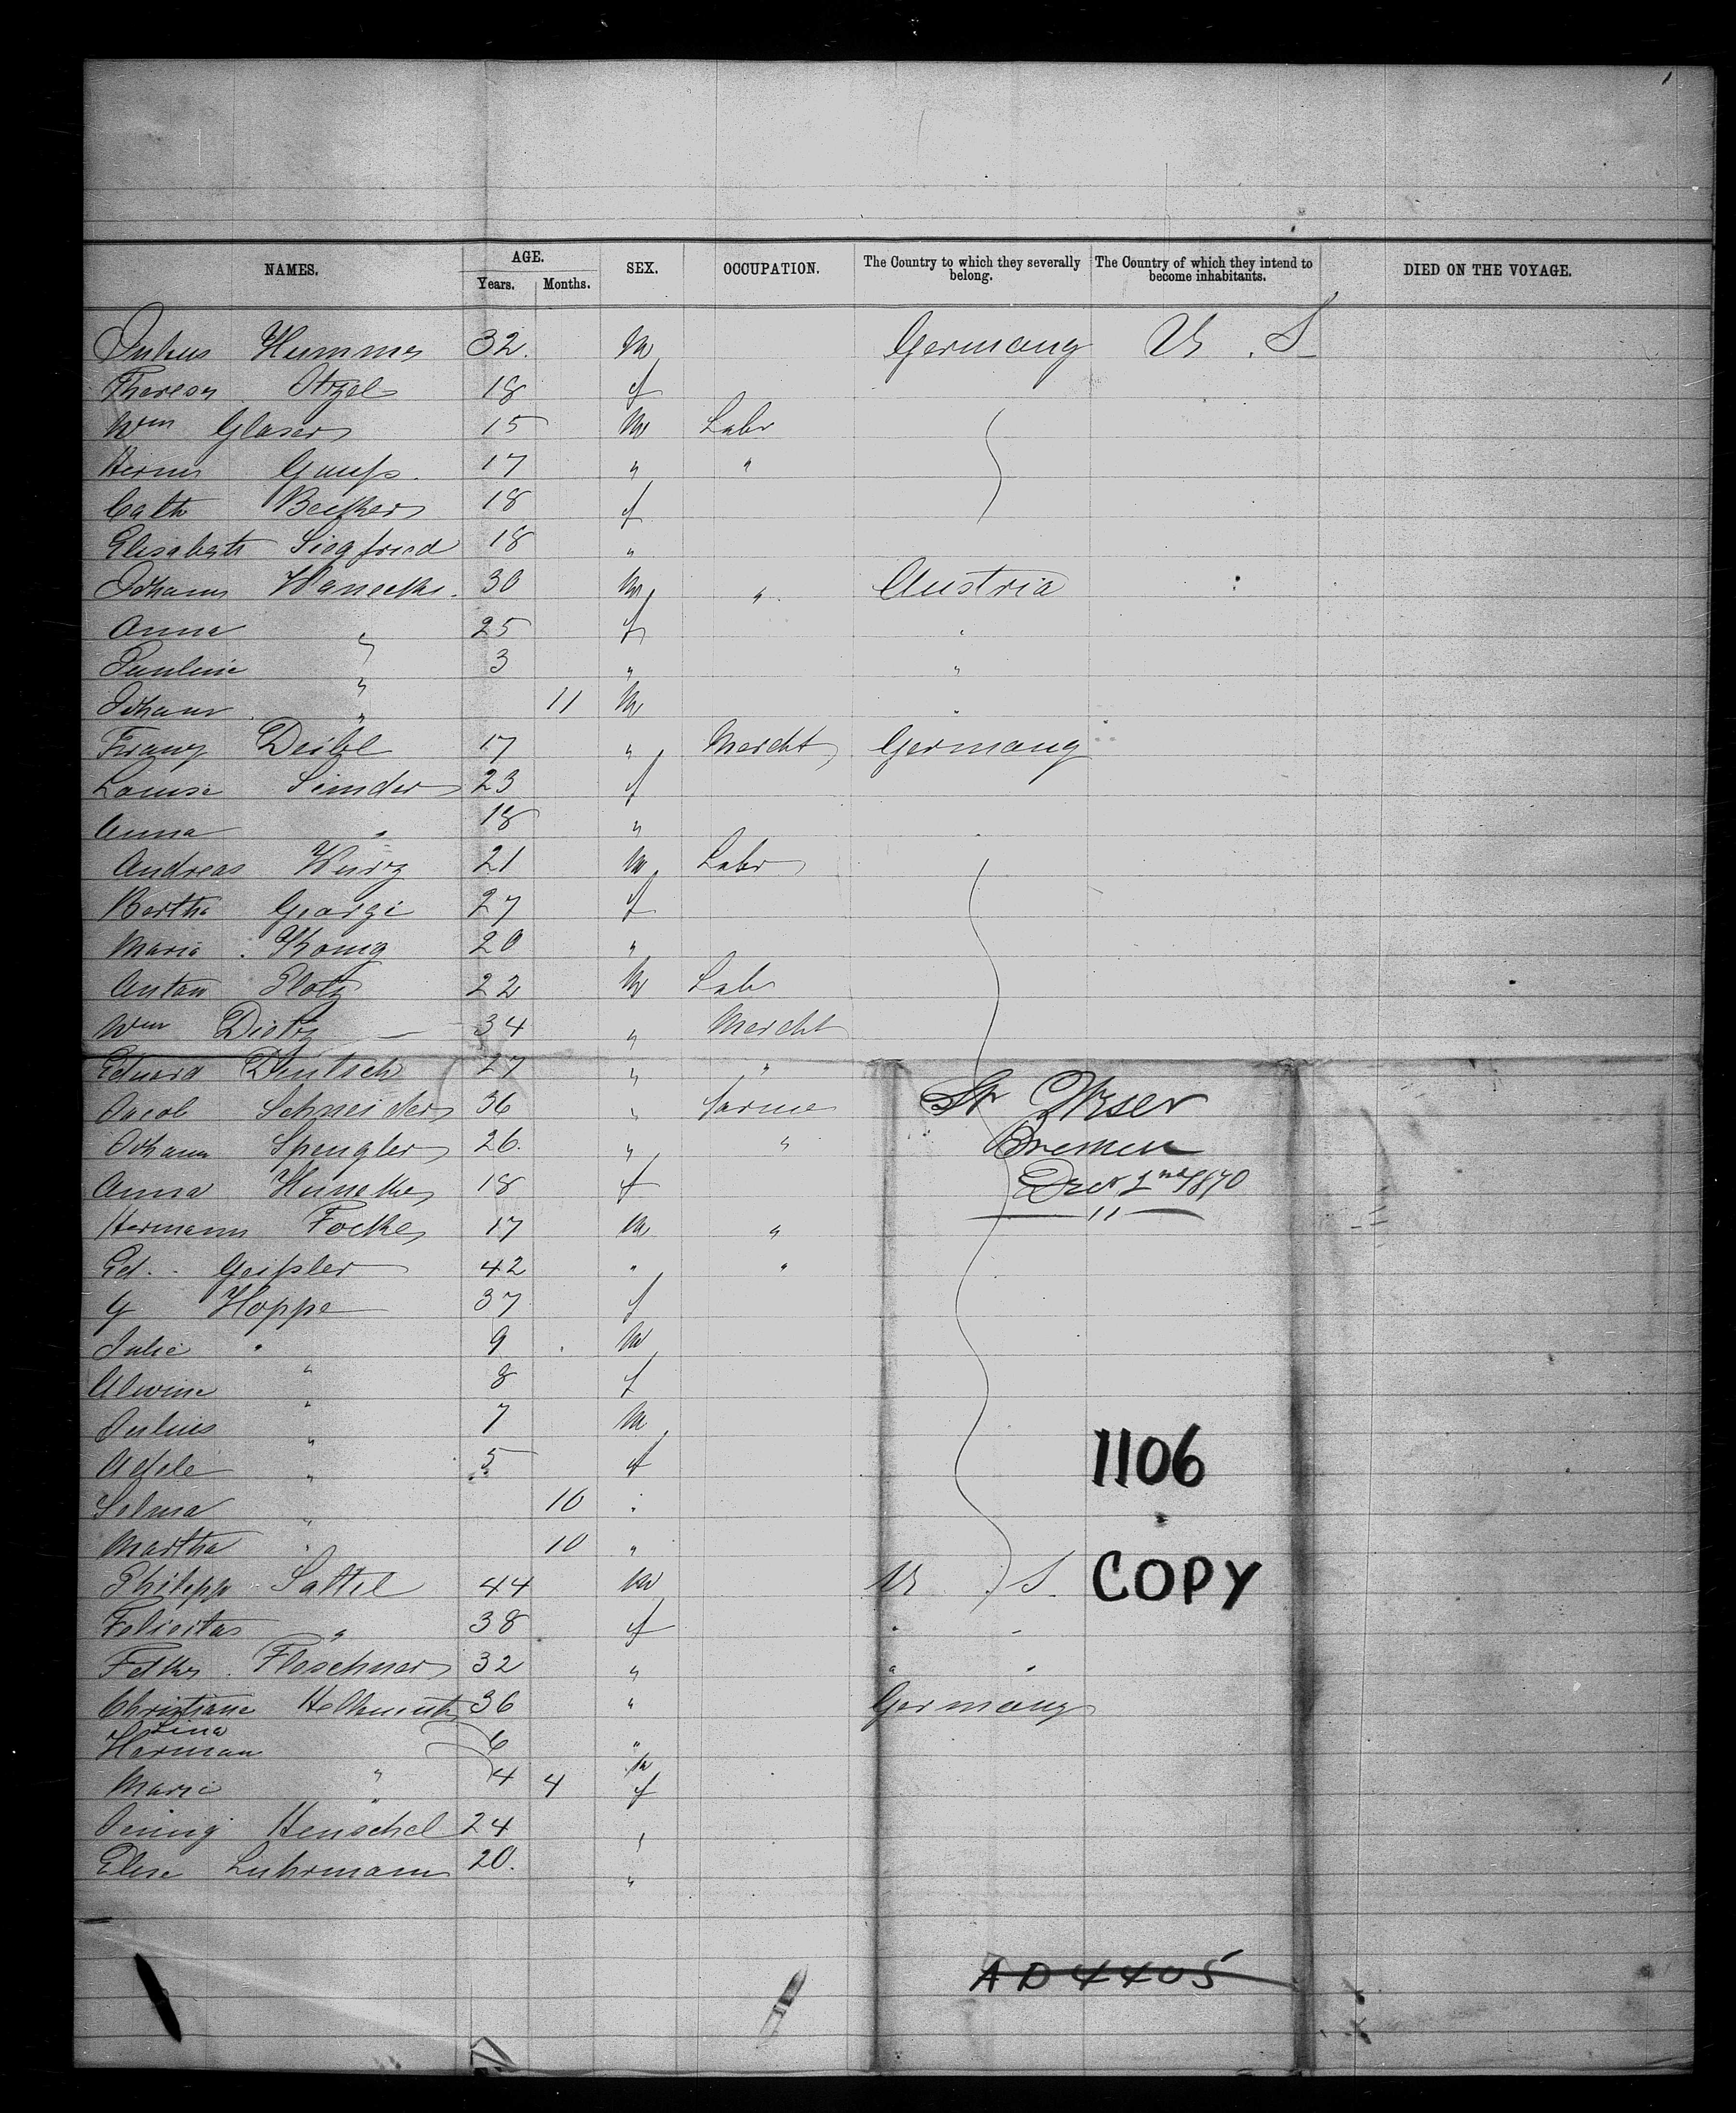 NAMES. AGE. Years. Months. SEX. OCCUPATION. The Country to which they severally belong. The Country of which they intend to become inhabitants. DIED ON THE VOYAGE.
Julius 32. M Germany U. S.
Theresa Atzel 18 f
Wm Glaser 15 M Labr
17 " "
Cath Becker 18 f
Elisabeth Siegfried 18 "
Johann 30 M " Austria
Anna " 25 f "
Pauline " 3 " "
Johann " 11 M "
Franz Deibl 17 " Mercht Germany
Louise 23 f
Anna " 18 "
Andreas Wurz 21 M Labr
Bertha Georgi 27 f
Maria Konig 20 "
Anton Plotz 22 M Labr
Wm Dietz 34 " Mercht
Eduard Deutsch 27 " "
Jacob Schneider 36 " farmer
Johann Spengler 26. " "
Anna 18 f
Hermann Focke 17 M "
Ed. Geißler 42 " "
G Hoppe 37 f
Julie " 9 M
Alwine " 8 f
Julius " 7 M
Adele " 5 f
Selma " 10 "
Martha " 10 "
Philipp Sattel 44 M U S.
Felicitas " 38 f " "
Fleschner 32 " " "
Christiane Hellmuth 36 " Germany
Lina 6 "
Herman " 4 M
Marie " 4 f
Henschel 24 "
Elise Luhrmann 20. "
St Weser
Bremen
Decr 2nd 1870
11
1106
COPY
AD4405